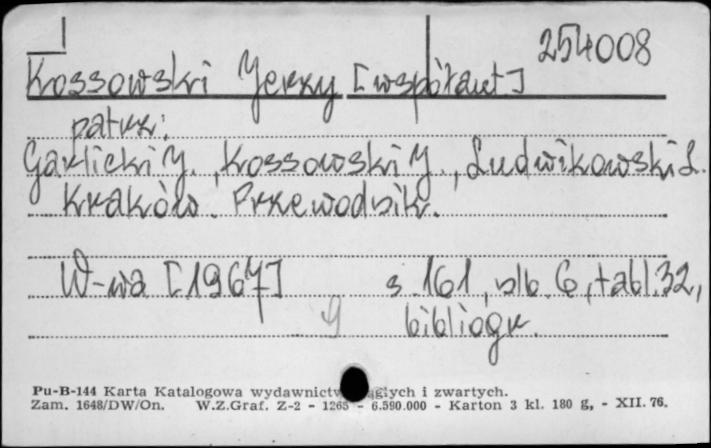 254008
Kossowski Jerzy [współaut]
patrz:
Garlicki J., Kossowski J., Ludwikowski L.
Kraków. Przewodnik.
W-wa [1967] s. 161, nlb. 6, tabl. 32,
bibliogr.
Pu-B-144 Karta Katalogowa wydawnictw ciągłych i zwartych.
Zam. 1648/DW/On. W.Z.Graf. Z-2 - 1265 - 6.590.000 - Karton 3 kl. 180 g, - XII. 76.